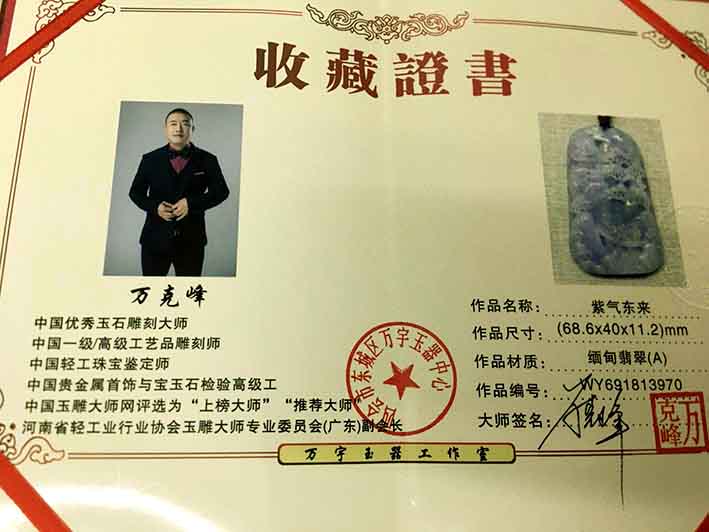 收藏證書
万克峰
中国优秀玉石雕刻大师
中国一级/高级工艺品雕刻师
中国轻工珠宝鉴定师
中国贵金属首饰与宝玉石检验高级工
中国玉雕大师网评选为“上榜大师”“推荐大师”
河南省轻工业行业协会玉雕大师专业委员会(广东)副会长
四会市东城区万宇玉器中心
作品名称: 紫气东来
作品尺寸: (68.6x40x11.2)mm
作品种类: 缅甸翡翠(A)
作品编号: WY691813970
大师签名: 万克峰
万克峰
万宇玉器工作室